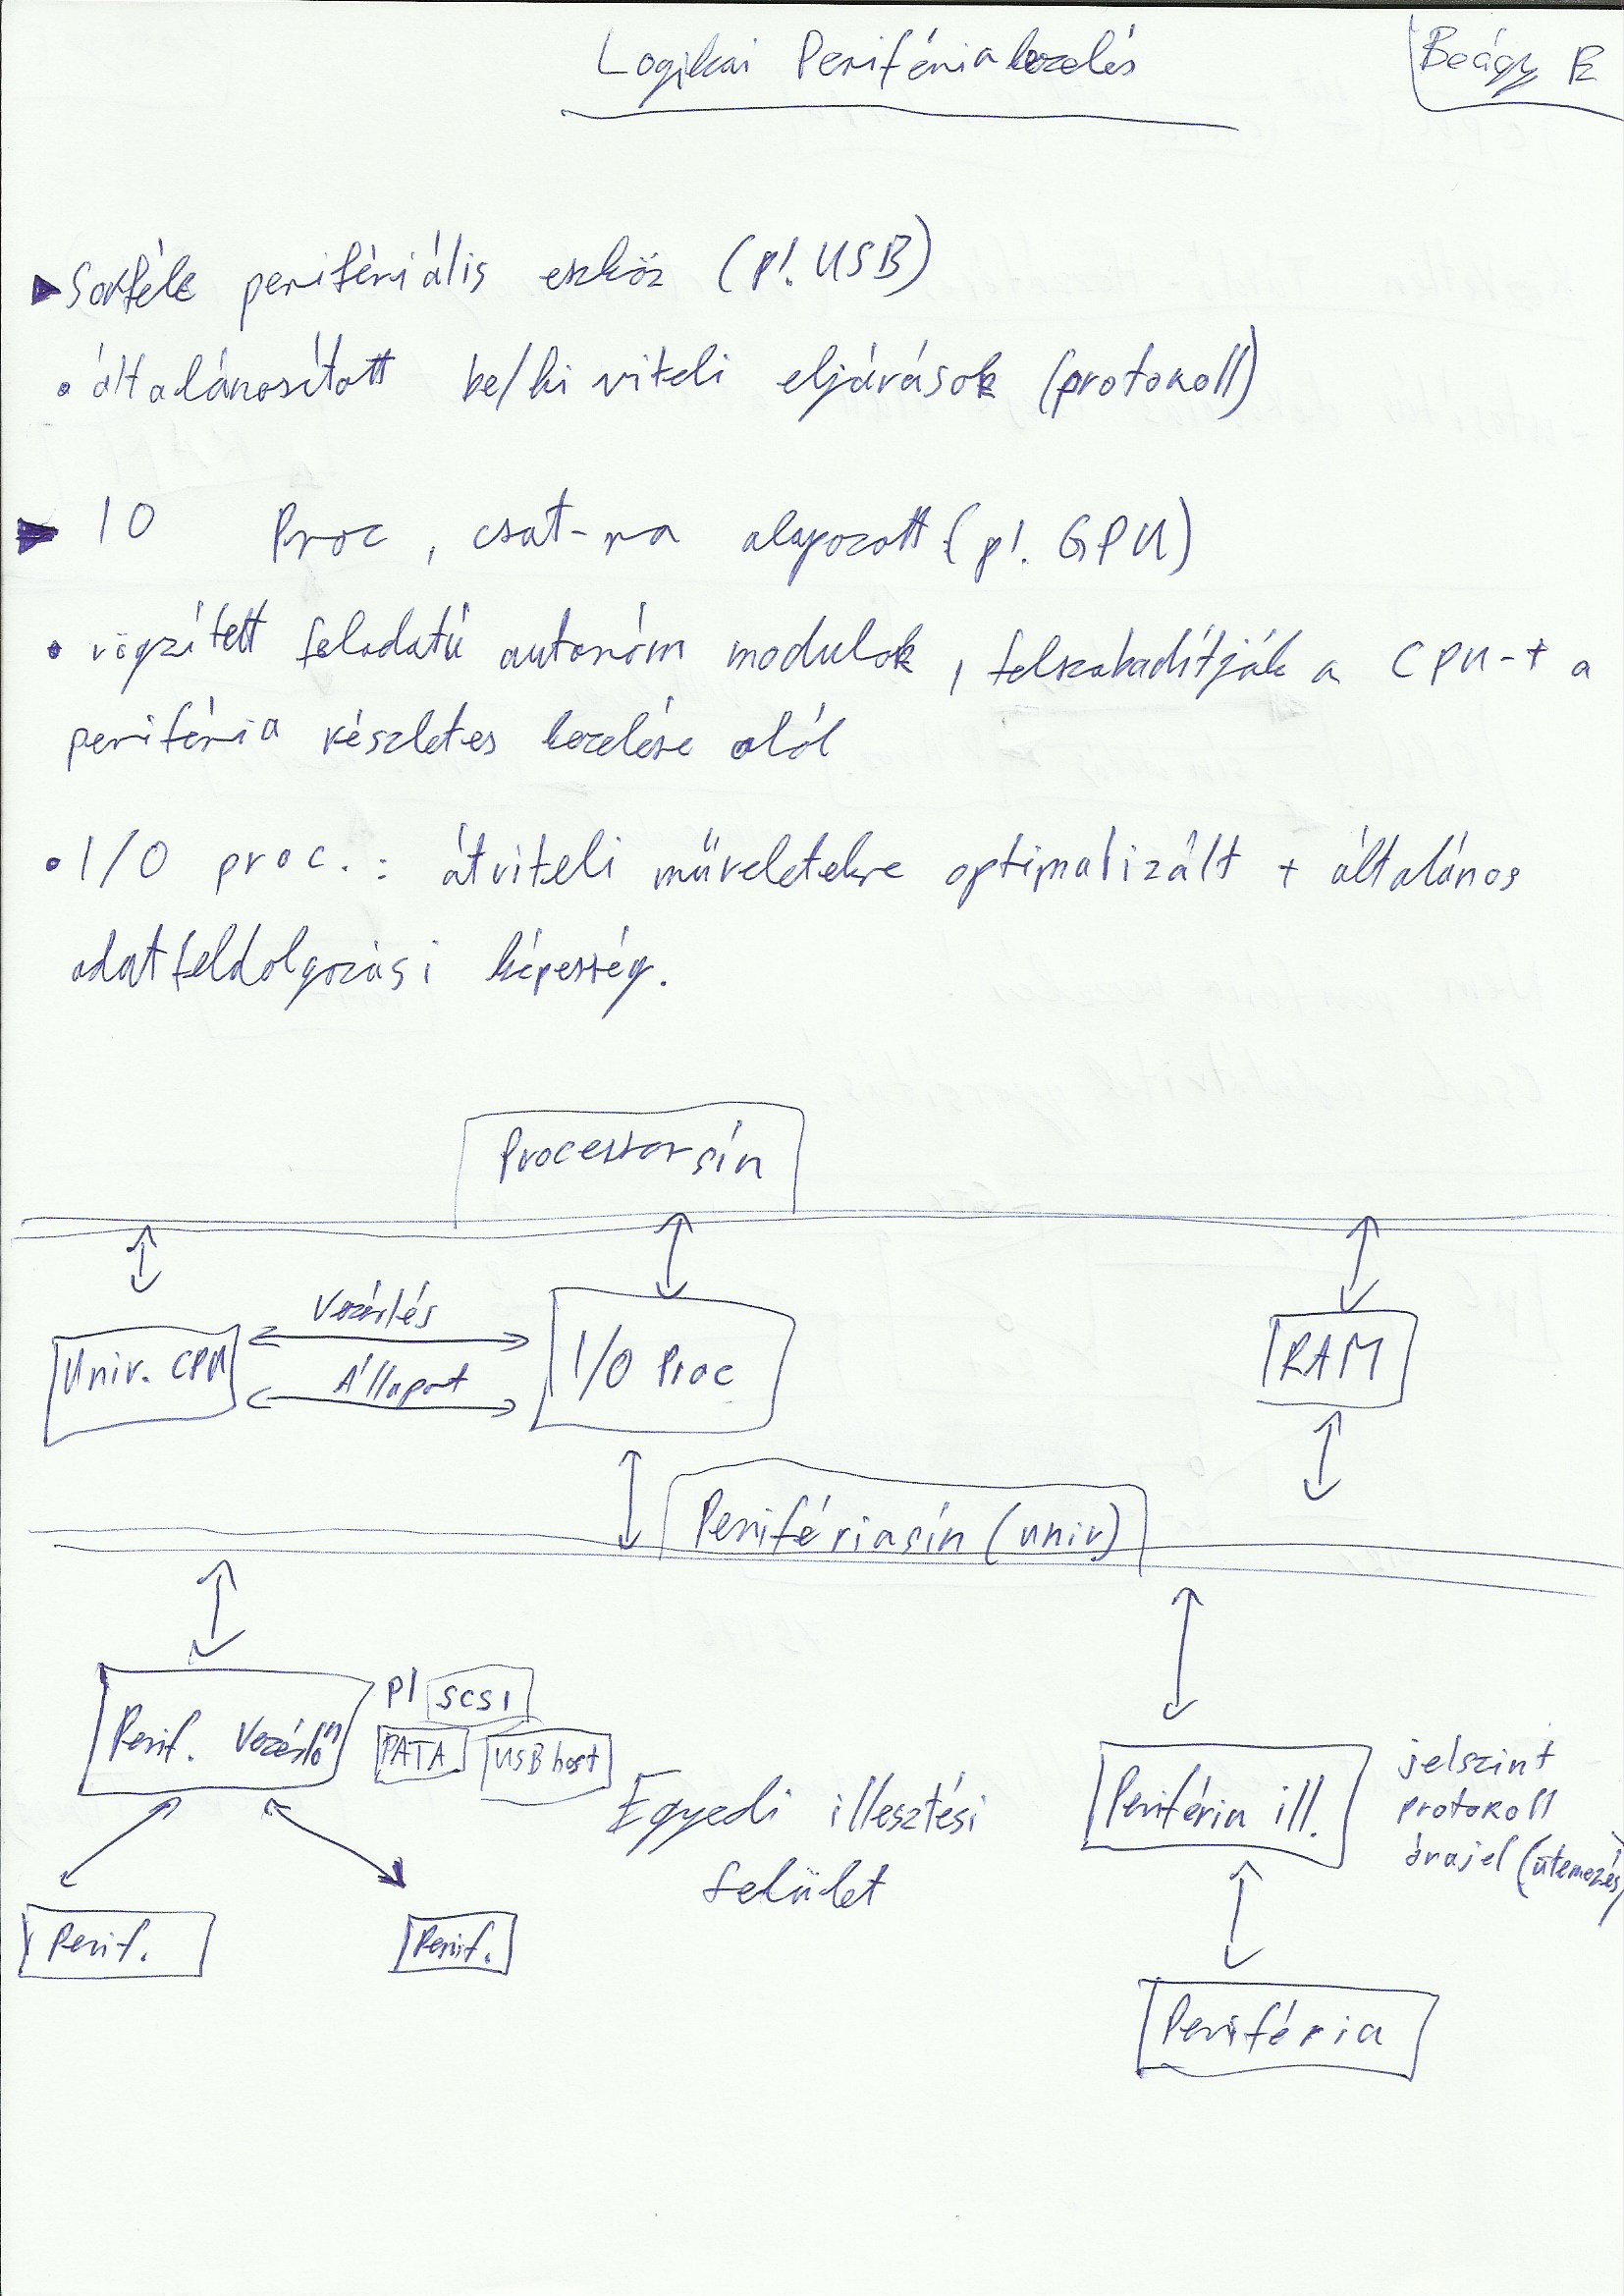 Logikai Perifériakezelés
Beágy R
Sokféle perifériális eszköz (pl. USB)
• általánosított be/ki viteli eljárások (protokoll)
IO Proc, csat-ra alapozott (pl. GPU)
• rögzített feladatú autonóm modulok, felszabadítják a CPU-t a
periféria részletes kezelése alól
• I/O proc.: átviteli műveletekre optimalizált + általános
adatfeldolgozási képesség.
Processzor sín
Vezérlés
Univ. CPU
I/O Proc
RAM
Állapot
Perifériasín (univ)
pl SCSI
Perif. Vezérlő
PATA USB host
Egyedi illesztési
felület
Periféria ill.
jelszint
protokoll
órajel (ütemezés)
Perif.
Perif.
Periféria